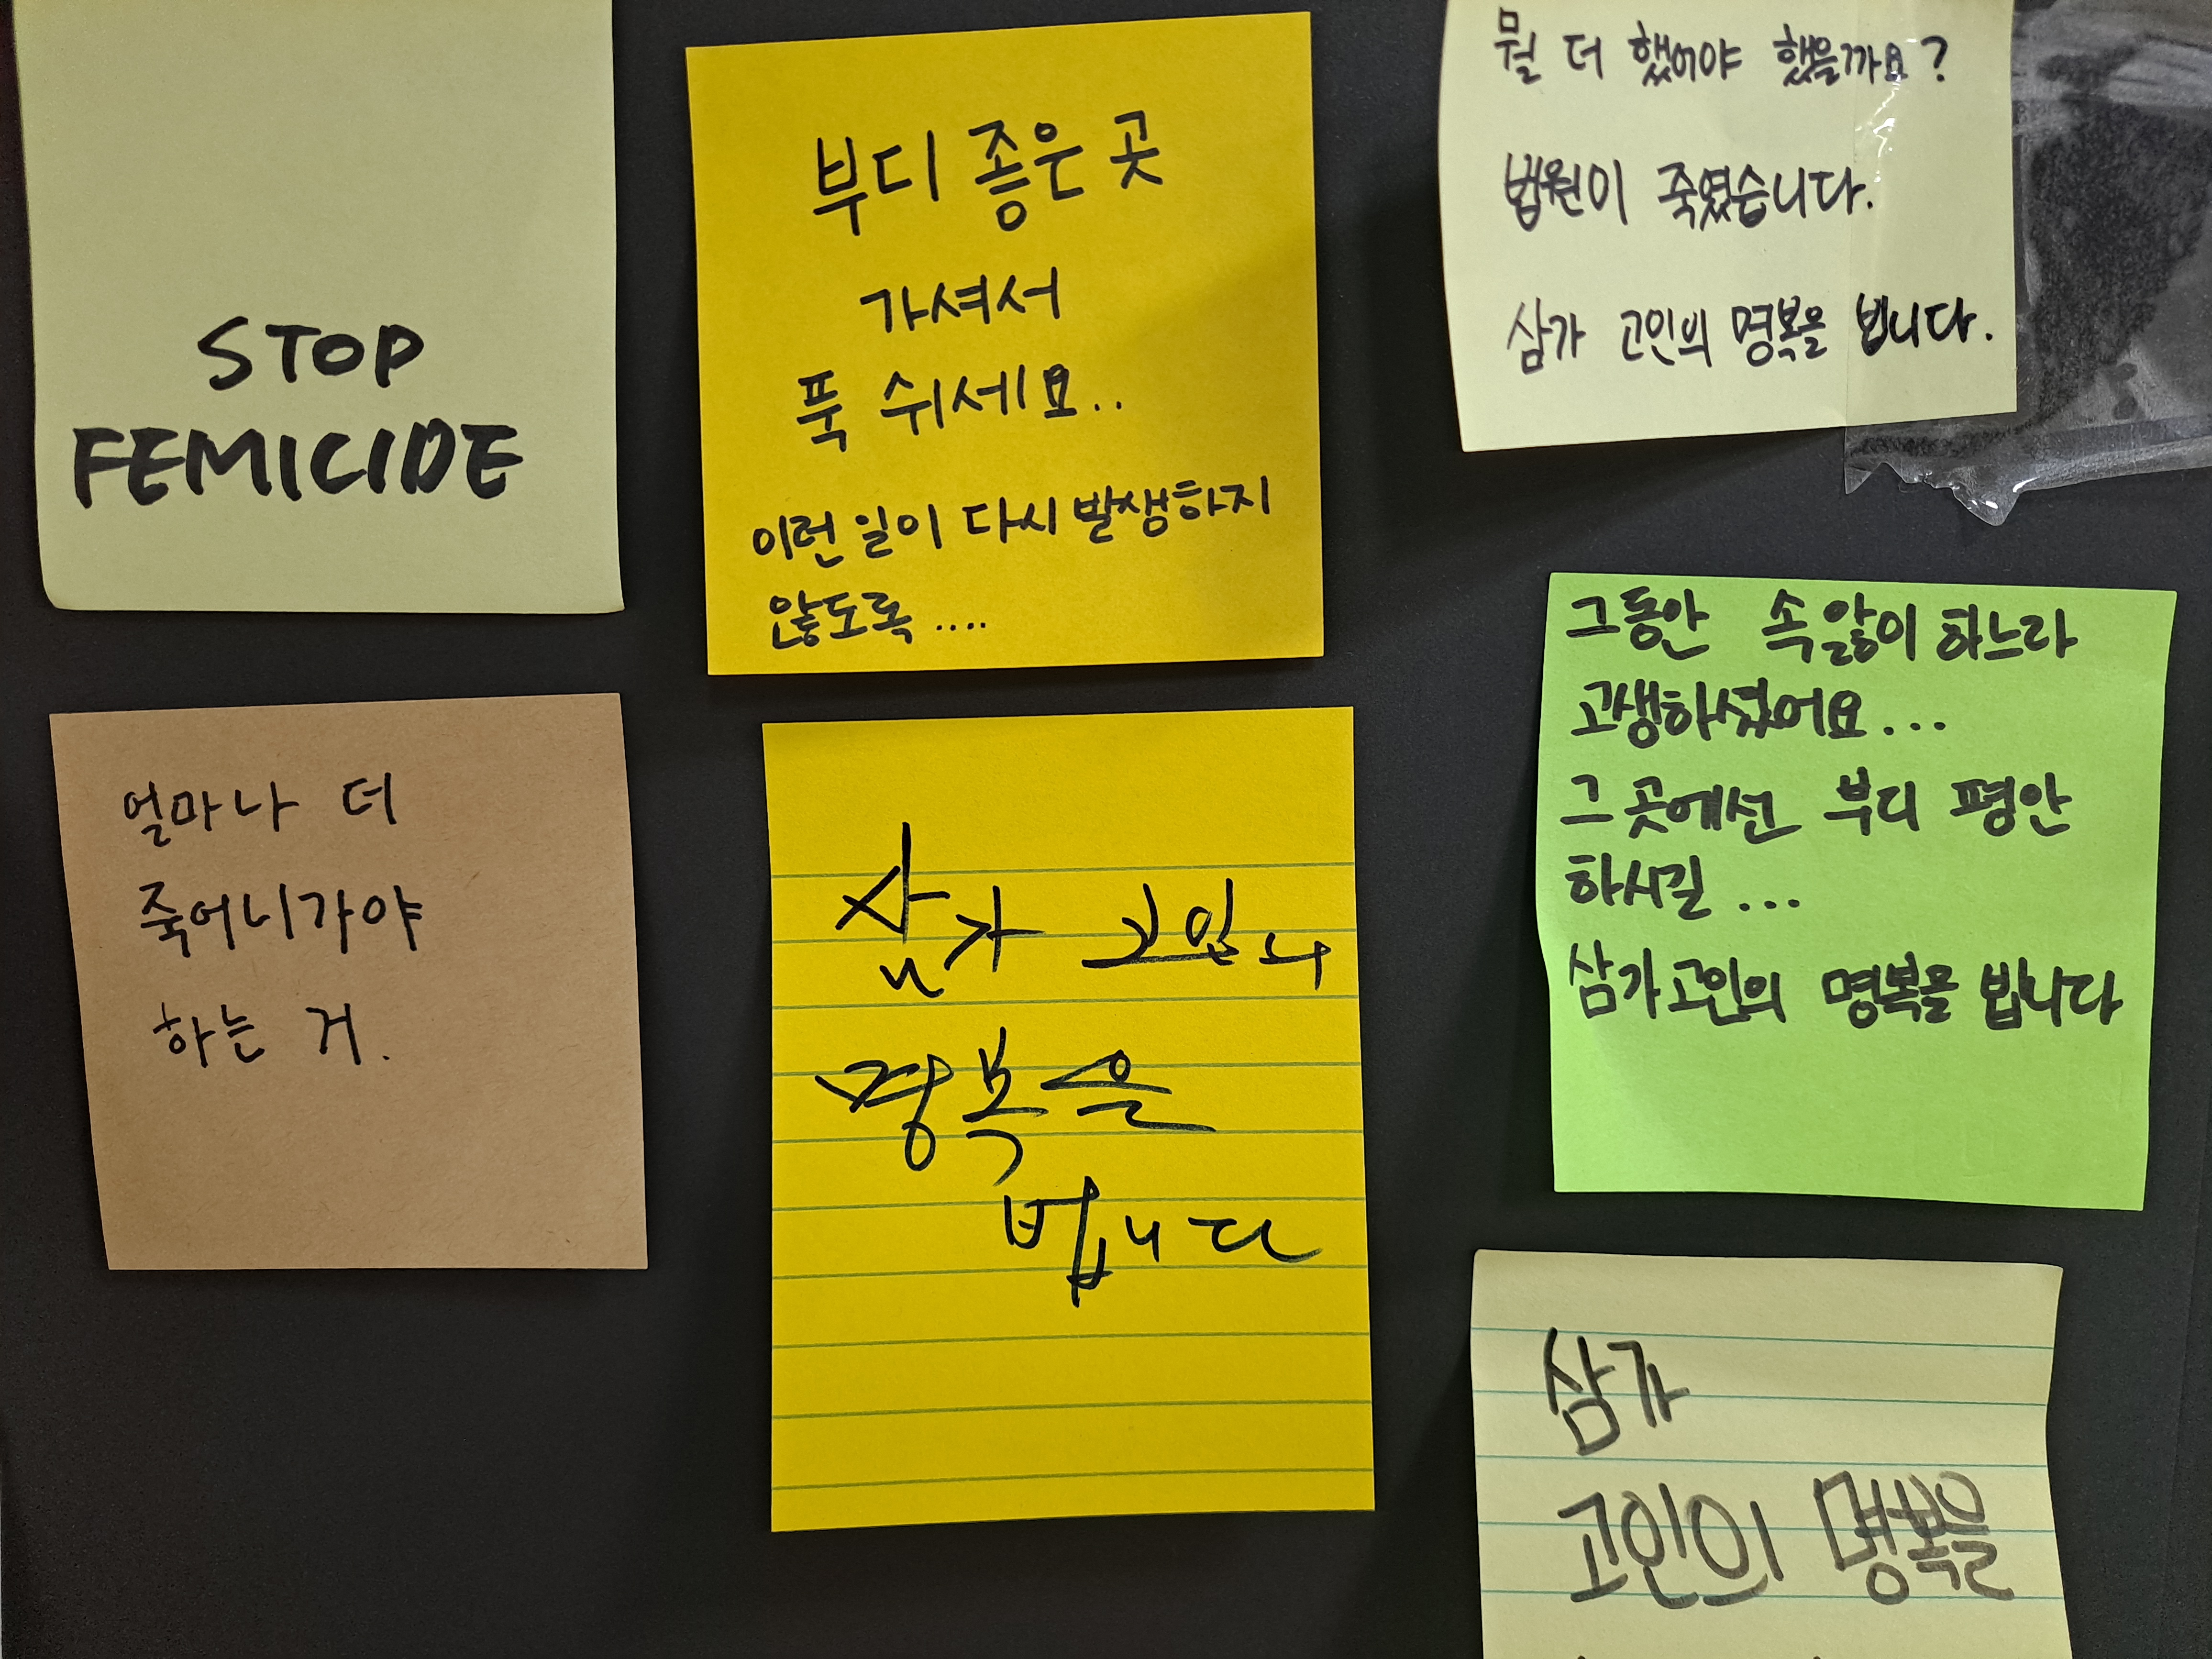 STOP
FEMICIDE
부디 좋은 곳
가셔서
푹 쉬세요..
이런 일이 다시 발생하지
않도록....
뭘 더 했어야 했을까요?
법원이 죽였습니다.
삼가 고인의 명복을 빕니다.
얼마나 더
죽어나가야
하는 거.
삼가 고인의
명복을
빕니다
그동안 속앓이 하느라
고생하셨어요...
그 곳에선 부디 평안
하시길...
삼가 고인의 명복을 빕니다
삼가
고인의 명복을